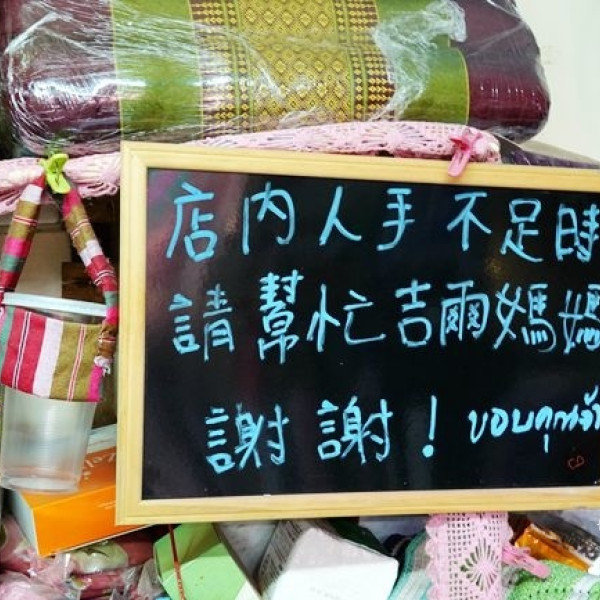 店內人手不足時
請幫忙吉爾媽媽
謝謝! ขอบคุณจ้า